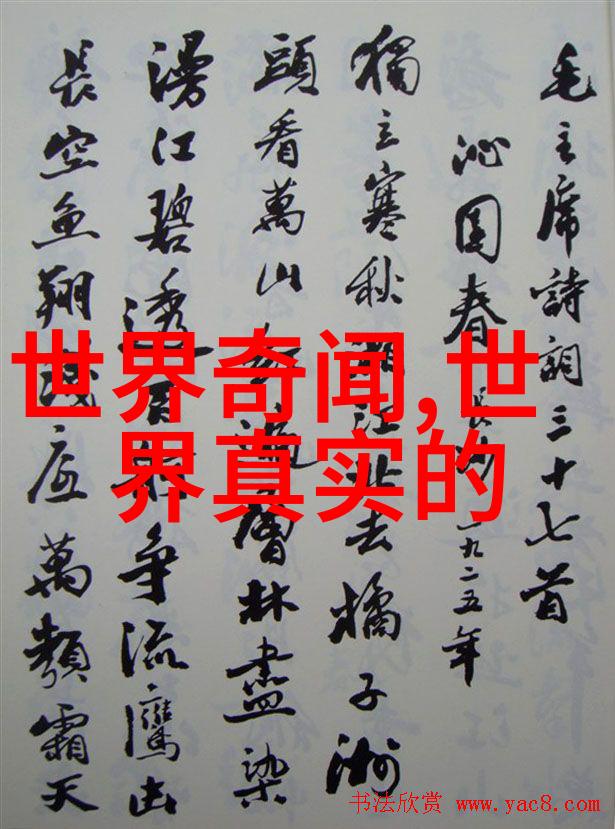 毛主席詩詞三十七首
沁园春 長沙 一九二五年
獨立寒秋湘江北去橘子洲
頭看萬山红遍層林盡染
漫江碧透百舸争流鷹击
長空鱼翔浅底萬類霜天
世界奇闻,世
界真实的
书法欣赏 www.yac8.com